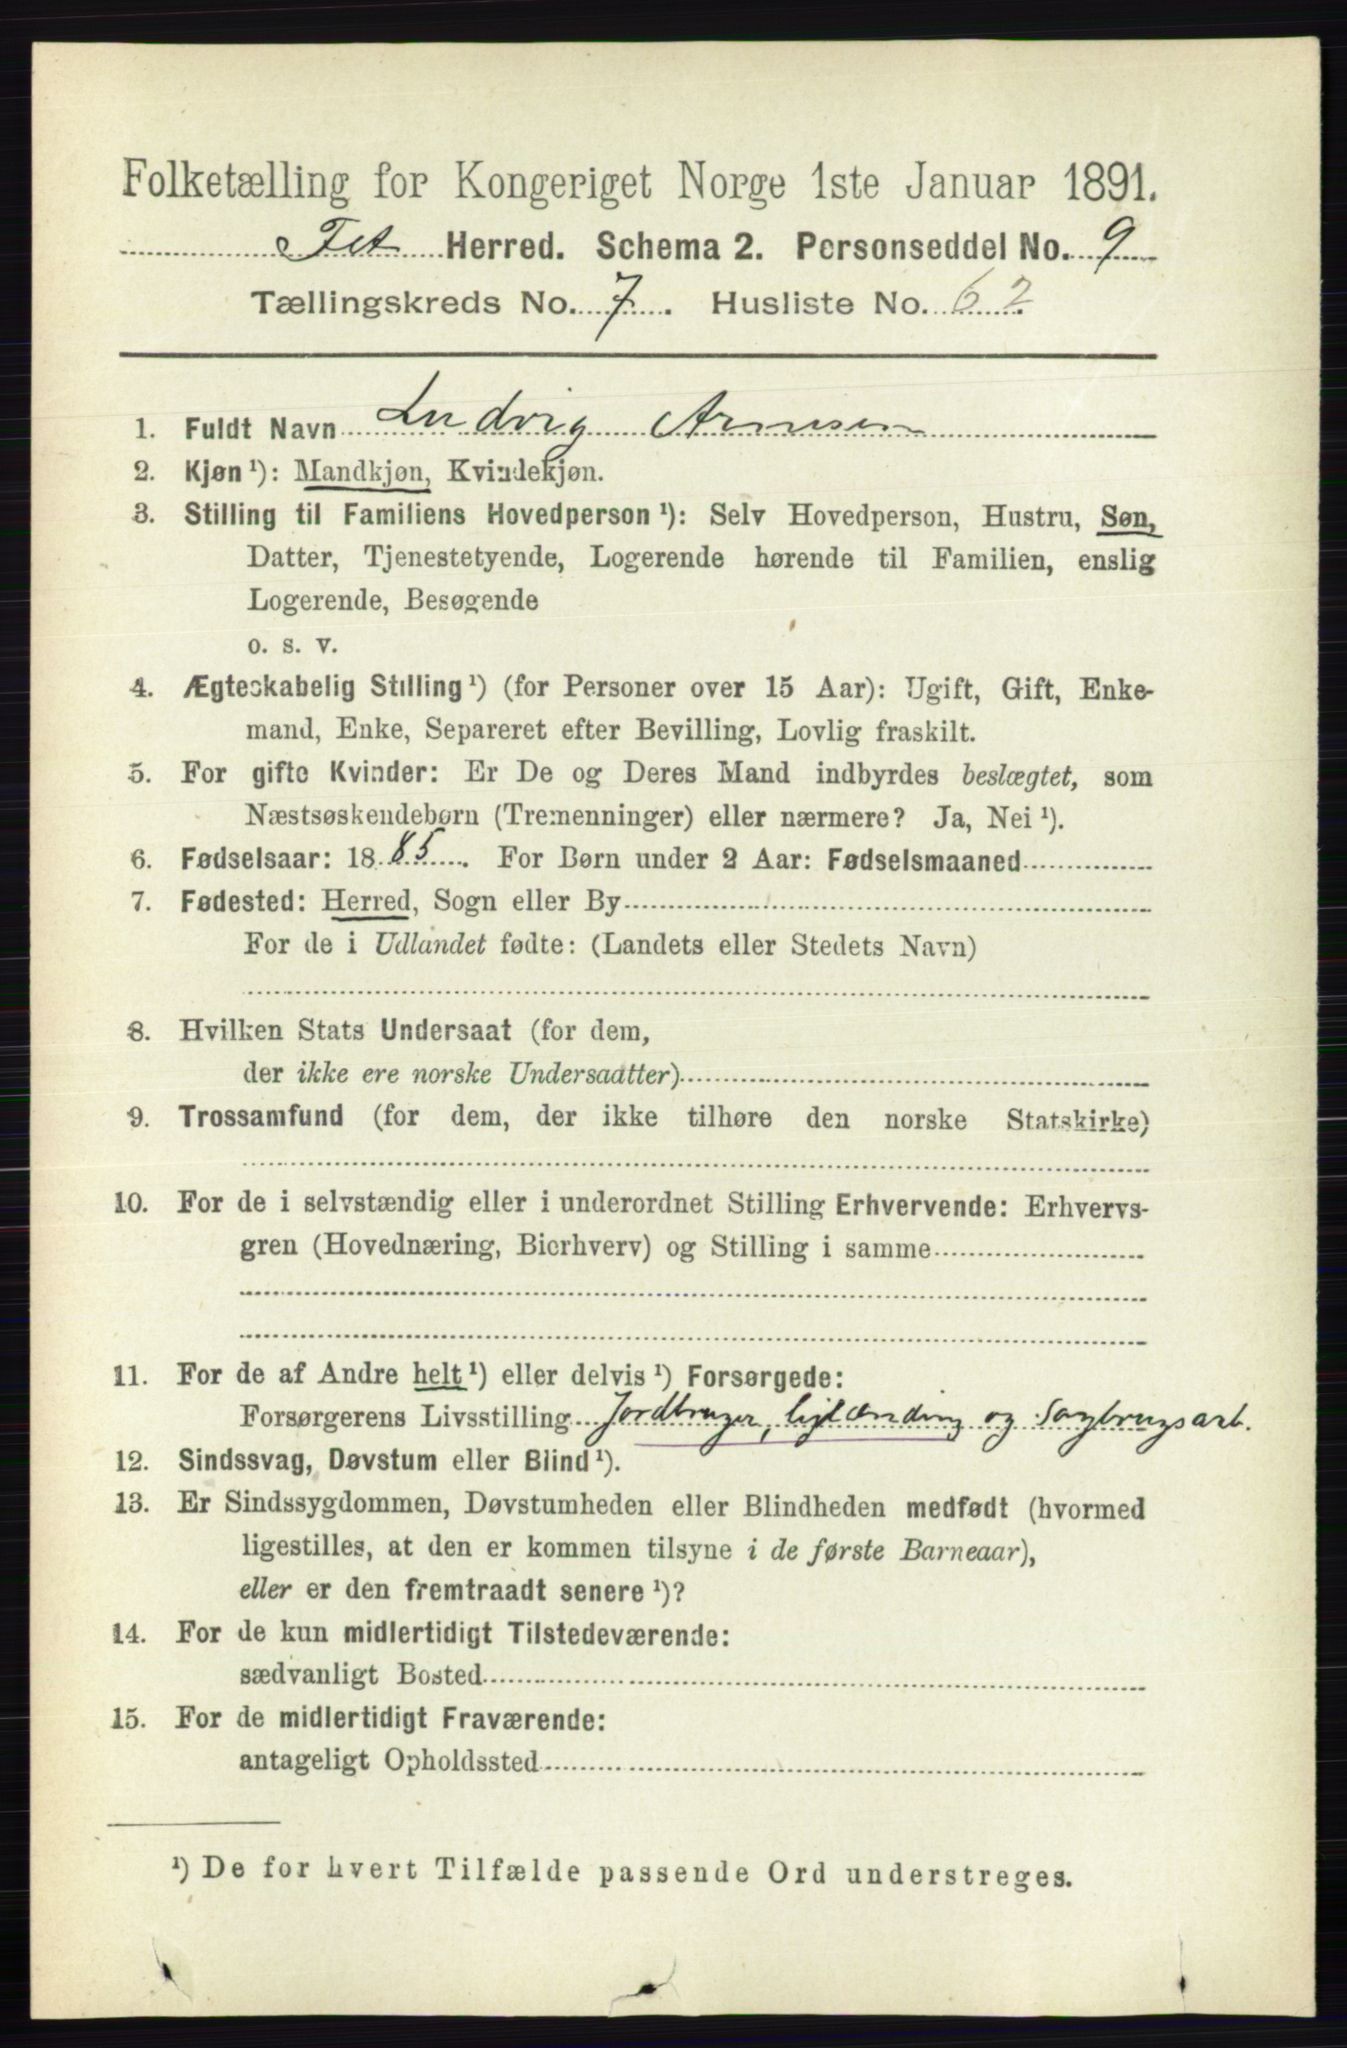 Folketælling for Kongeriget Norge 1ste Januar 1891.
Fet Herred. Schema 2. Personseddel No. 9
Tællingskreds No. 7. Husliste No. 62
1. Fuldt Navn Ludvig Arnesen
2. Kjøn¹): Mandkjøn, Kvindekjøn.
3. Stilling til Familiens Hovedperson¹): Selv Hovedperson, Hustru, Søn,
Datter, Tjenestetyende, Logerende hørende til Familien, enslig
Logerende, Besøgende
o. s. v.
4. Ægteskabelig Stilling¹) (for Personer over 15 Aar): Ugift, Gift, Enke-
mand, Enke, Separeret efter Bevilling, Lovlig fraskilt.
5. For gifte Kvinder: Er De og Deres Mand indbyrdes beslægtet, som
Næstsøskendebørn (Tremenninger) eller nærmere? Ja, Nei¹).
6. Fødselsaar: 1885. For Børn under 2 Aar: Fødselsmaaned
7. Fødested: Herred, Sogn eller By
For de i Udlandet fødte: (Landets eller Stedets Navn)
8. Hvilken Stats Undersaat (for dem,
der ikke ere norske Undersaatter)
9. Trossamfund (for dem, der ikke tilhøre den norske Statskirke)
10. For de i selvstændig eller i underordnet Stilling Erhvervende: Erhvervs-
gren (Hovednæring, Bierhverv) og Stilling i samme
11. For de af Andre helt¹) eller delvis¹) Forsørgede:
Forsørgerens Livsstilling Jordbruger, og Sagbrugsarb.
12. Sindssvag, Døvstum eller Blind¹).
13. Er Sindssygdommen, Døvstumheden eller Blindheden medfødt (hvormed
ligestilles, at den er kommen tilsyne i de første Barneaar),
eller er den fremtraadt senere¹)?
14. For de kun midlertidigt Tilstedeværende:
sædvanligt Bosted
15. For de midlertidigt Fraværende:
antageligt Opholdssted
¹) De for hvert Tilfælde passende Ord understreges.